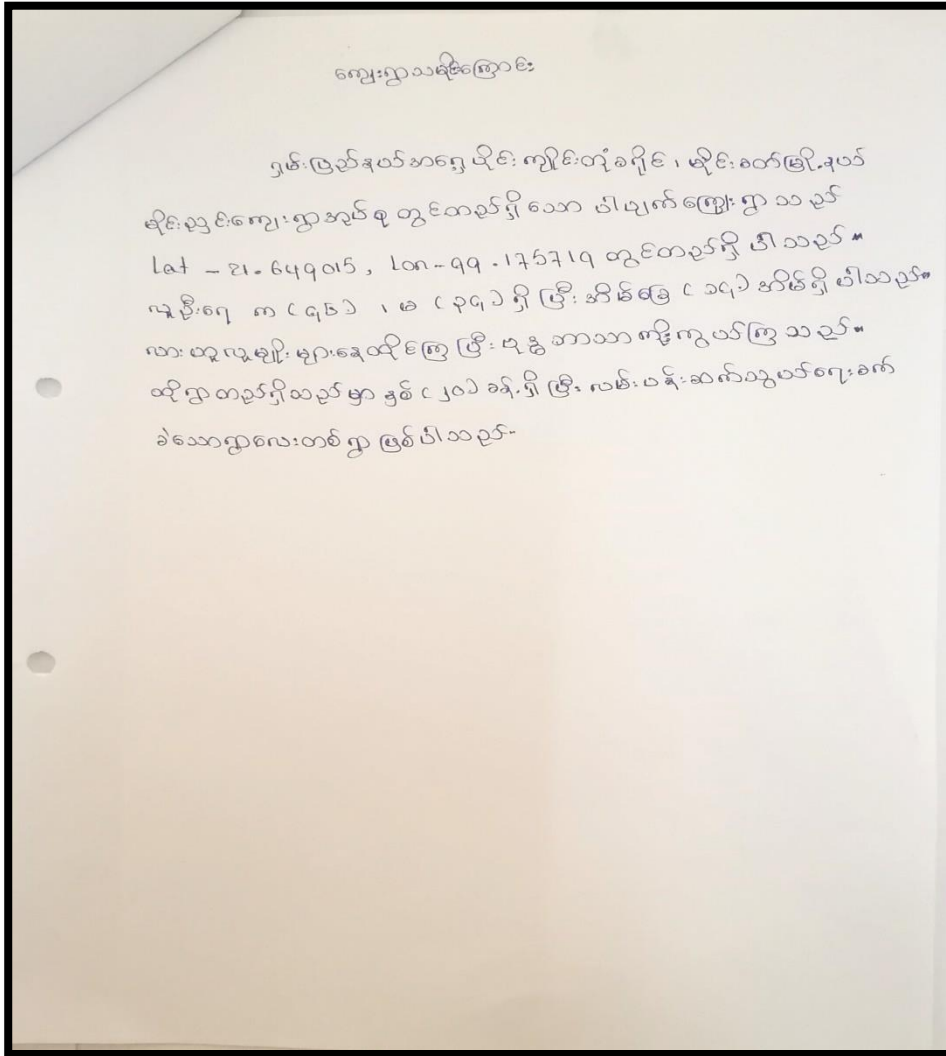 ကျေးရွာသရိုင်းကြောင်း
ရှမ်းပြည်နယ်အရှေ့ပိုင်း ကျိုင်းတုံခရိုင်၊ မိုင်းခတ်မြို့နယ်
မိုင်းညွင်းကျေးရွာအုပ်စု တွင်တည်ရှိသော ပါပျက်ကျေးရွာ သည်
Lat - 21.649015, Lon-99.175719 တွင်တည်ရှိ ပါသည်။
လူဦးရေ က (၄၆) ၊ မ (၃၄) ရှိ ပြီး အိမ်ခြေ (၁၄) အိမ်ရှိ ပါသည်။
လားဟူလူမျိုး များနေထိုင်ကြ ပြီး ဗုဒ္ဓဘာသာ ကိုးကွယ်ကြ သည်။
ထိုရွာတည်ရှိသည်မှာ နှစ် (၂၀) ခန့်ရှိ ပြီး လမ်းပန်းဆက်သွယ်ရေးခက်
ခဲသောရွာလေးတစ်ရွာ ဖြစ်ပါသည်-